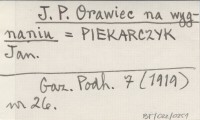 J. P. Orawiec na wyg-
naniu = PIEKARCZYK
Jan.
Gaz. Podh. 7 (1919)
nr 26.